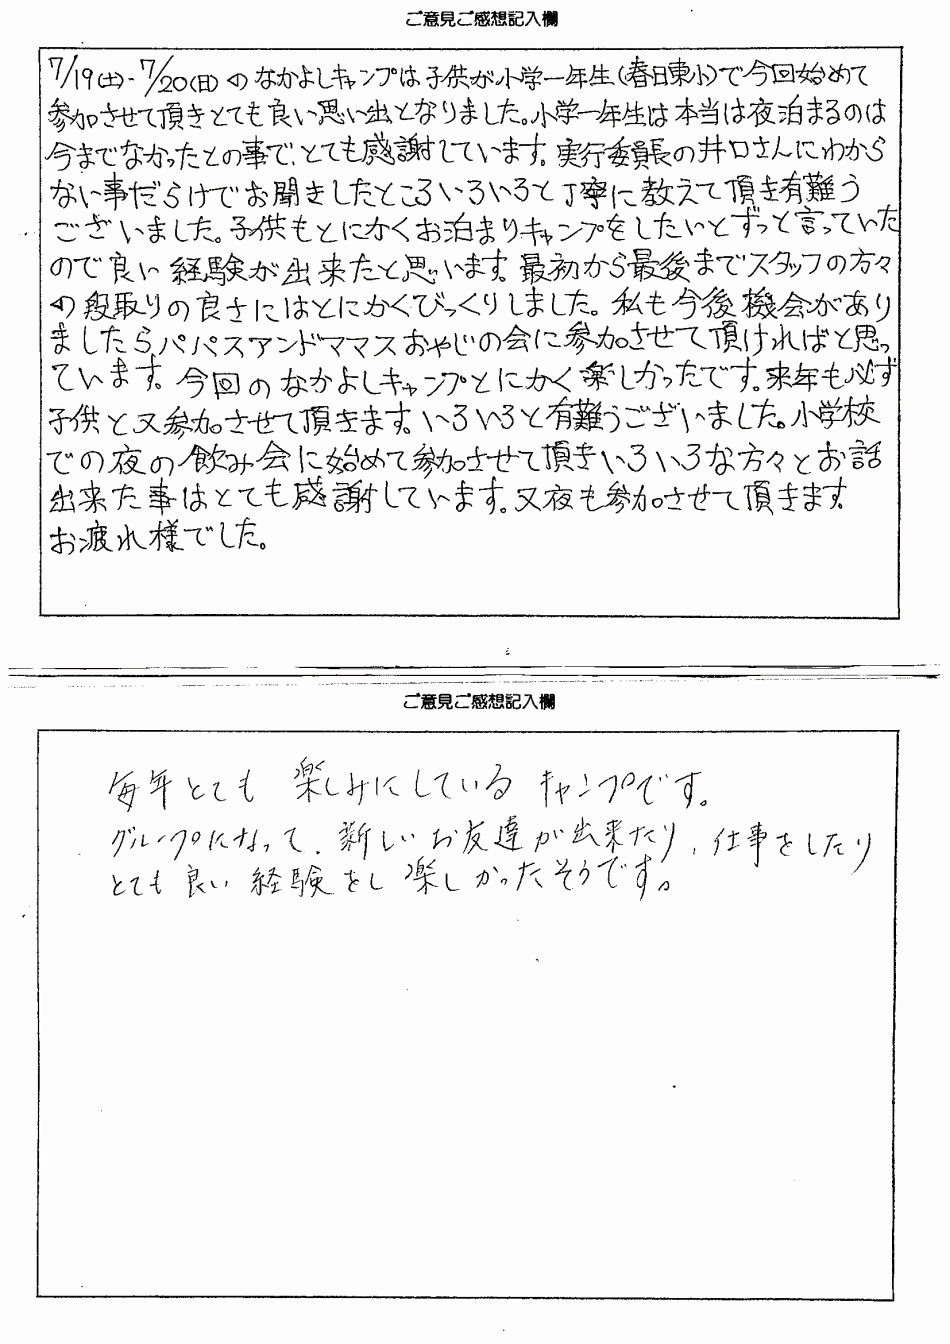 ご意見ご感想記入欄
7/19(土)-7/20(日)のなかよしキャンプは子供が小学一年生(春日東小)で今回始めて
参加させて頂きとても良い思い出となりました。小学一年生は本当は夜泊まるのは
今までなかったとの事で、とても感謝しています。実行委員長の井口さんにわから
ない事だらけでお聞きしたところいろいろと丁寧に教えて頂き有難う
ございました。子供もとにかくお泊まりキャンプをしたいとずっと言っていた
ので良い経験が出来たと思います。最初から最後までスタッフの方々
の段取りの良さにはとにかくびっくりしました。私も今後機会があり
ましたらパパスアンドママスおやじの会に参加させて頂ければと思っ
ています。今回のなかよしキャンプとにかく楽しかったです。来年も必ず
子供と又参加させて頂きます。いろいろと有難うございました。小学校
での夜の飲み会に始めて参加させて頂きいろいろな方々とお話
出来た事はとても感謝しています。又夜も参加させて頂きます。
お疲れ様でした。
ご意見ご感想記入欄
毎年とても楽しみにしているキャンプです。
グループになって、新しいお友達が出来たり、仕事をしたり
とても良い経験をし楽しかったそうです。